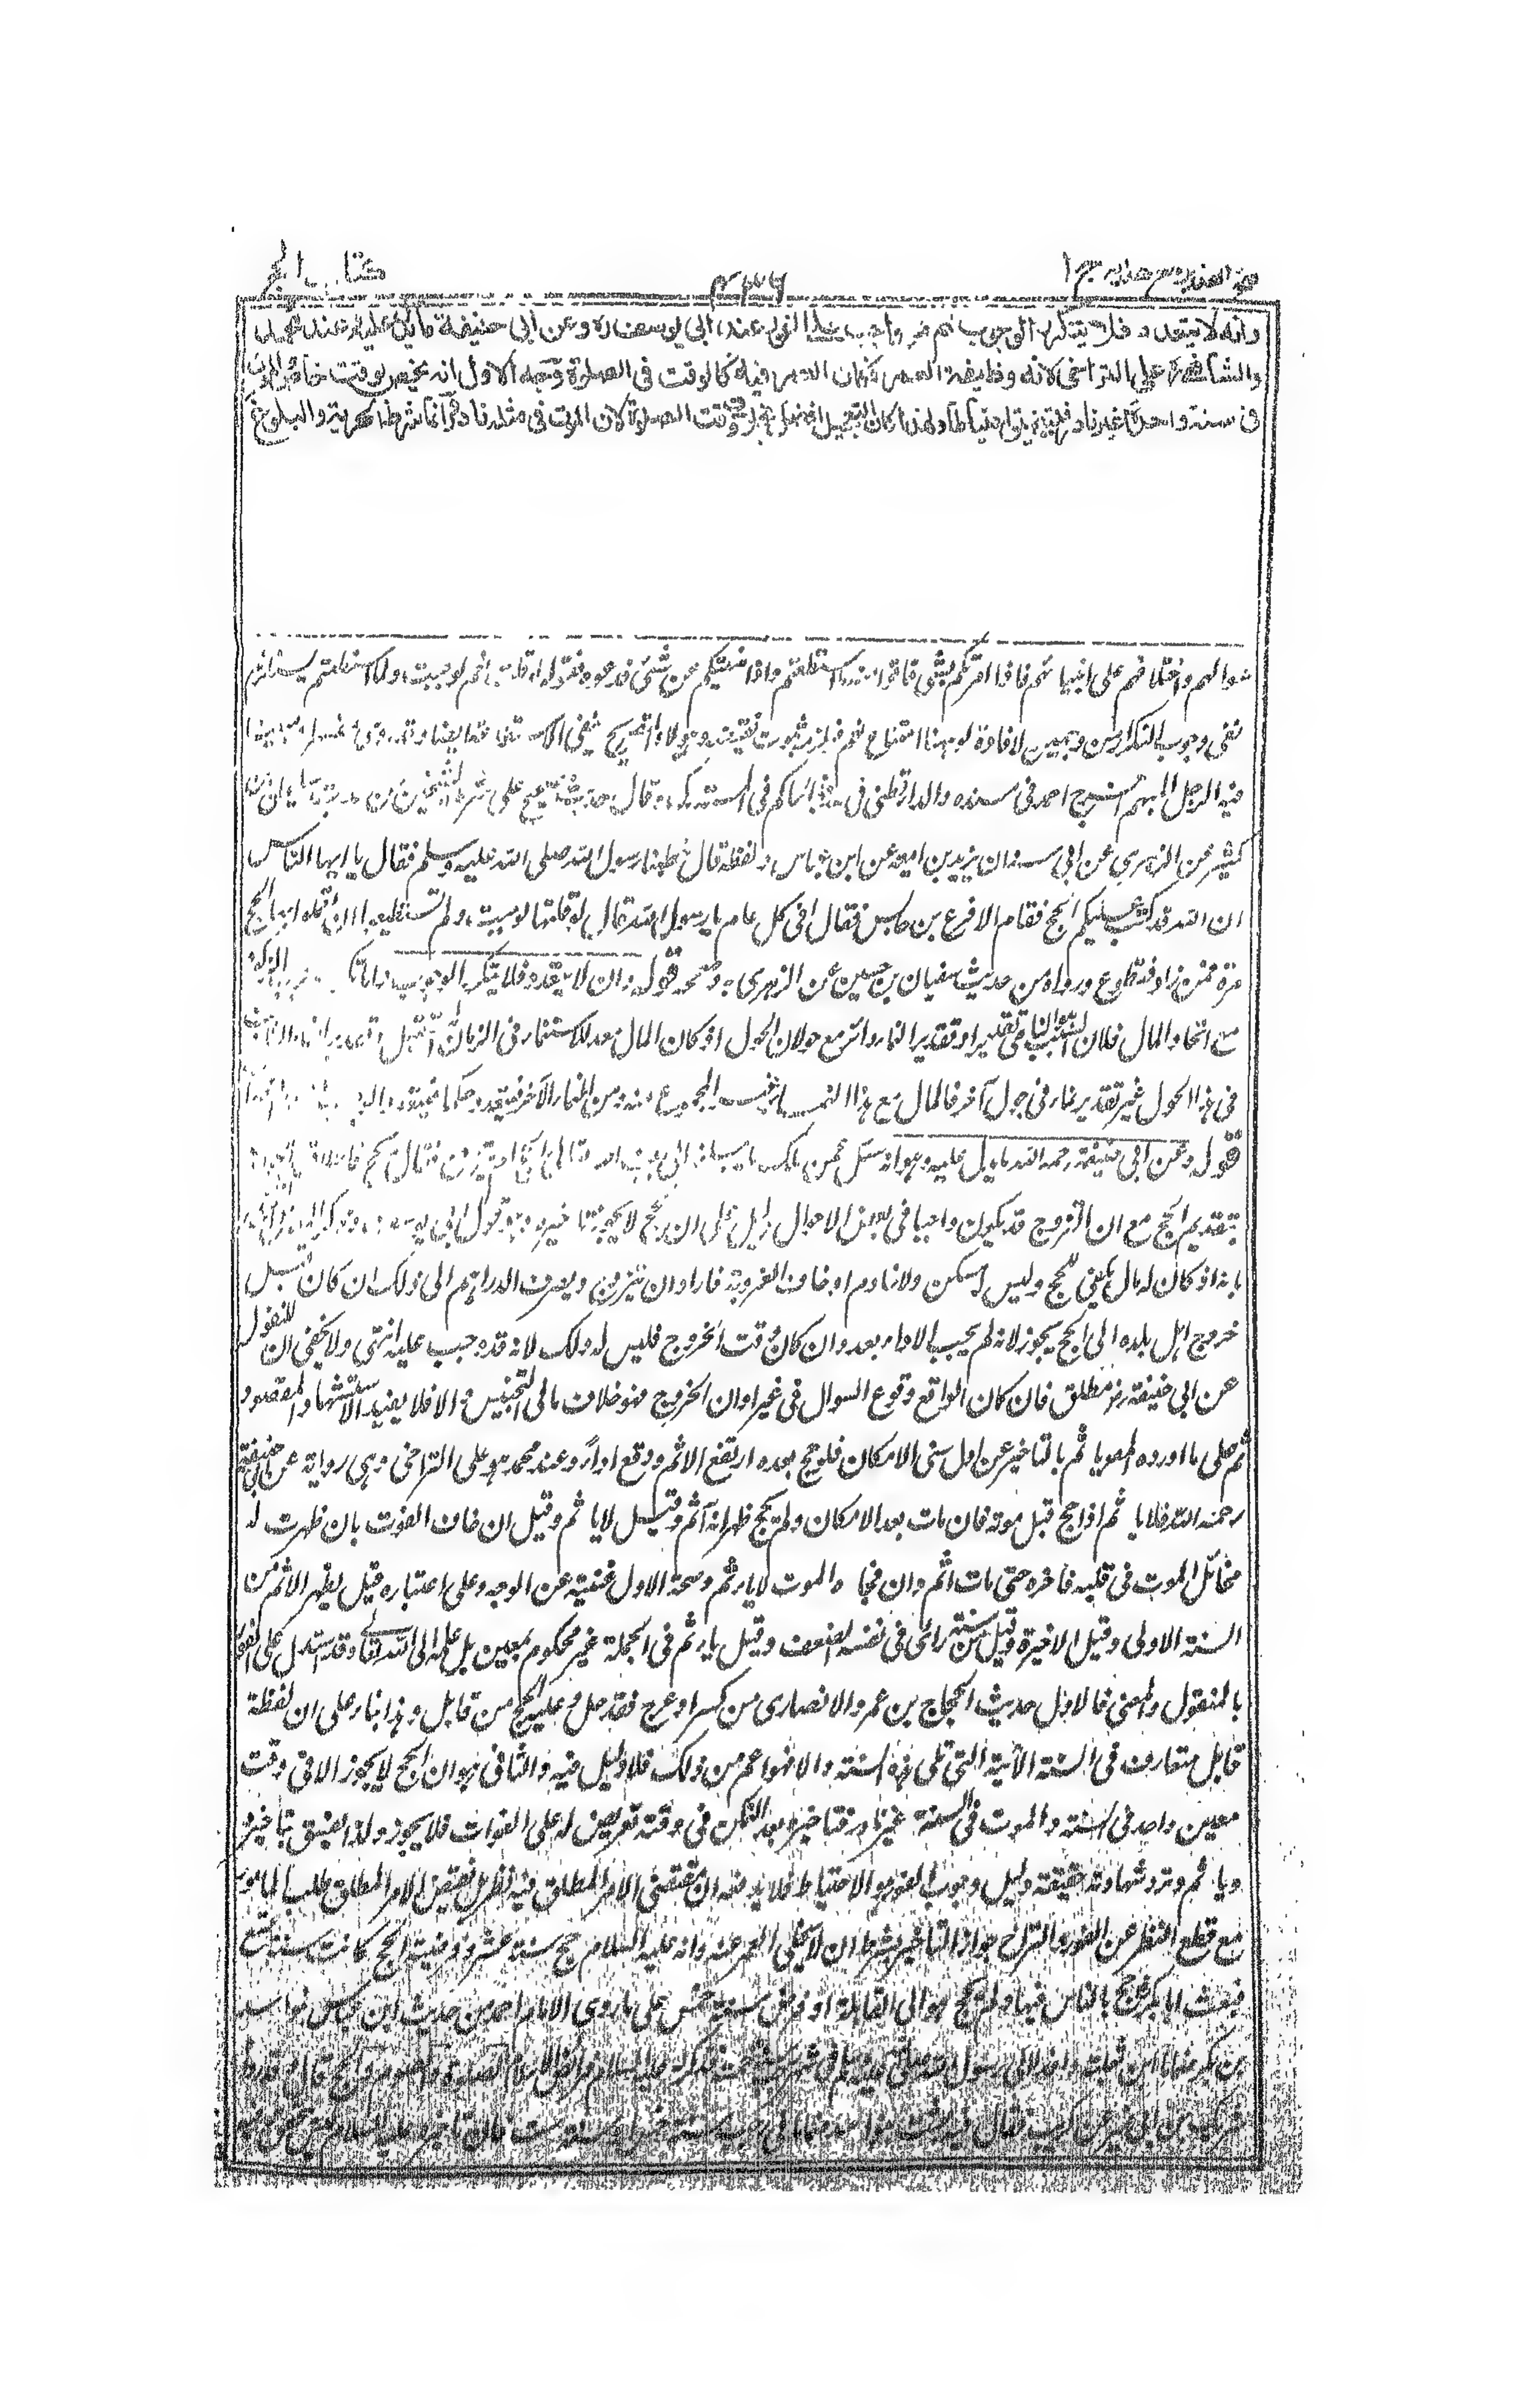 كتاب الحج
٤٣٦
فتح القدير مع هدايه ج ١
وانه لا يتعدد فلا يتكرر الوجوب ثم هو واجب على الفور عند ابى يوسف ره وعن ابى حنيفة ما يدل عليه وعند محمد
والشافعى على التراخى لانه وظيفة العمر فكان العمر فيه كالوقت فى الصلوة وجه الاول انه يختص بوقت خاص والموت
فى سنة واحدة غير نادر فيتضيق احتياطا ولهذا كان التعجيل افضل بخلاف وقت الصلوة لان الموت فى مثله نادر وانما شرط الحرية والبلوغ
سوالهم واختلافهم على انبيائهم فاذا امرتكم بشئ فاتوا منه ما استطعتم واذا نهيتكم عن شئ فدعوه فقوله لو قلت نعم لوجبت ولما استطعتم يستلزم
نفى وجوب التكرار من وجهين لافادة لو هنا امتناع نعم فيلزم ثبوت نقيضه وهو لا والتصريح بنفى الاستطاعة ايضا وقد روى مفسرا ومبينا
فيه الرجل المبهم اخرج احمد فى مسنده والدارقطنى فى سننه والحاكم فى المستدرك وقال حديث صحيح على شرط الشيخين من حديث سليمان بن
كثير عن الزهرى عن ابى سنان يزيد بن امية عن ابن عباس ولفظه قال خطبنا رسول الله صلى الله عليه وسلم فقال يا ايها الناس
ان الله قد كتب عليكم الحج فقام الاقرع بن حابس فقال افى كل عام يا رسول الله قال لو قلتها لوجبت ولم تستطيعوا ان تعملوا بها الحج
مرة فمن زاد فتطوع ورواه من حديث سفيان بن حسين عن الزهرى وصححه قوله وانه لا يتعدد فلا يتكرر الوجوب واما
مع اتحاد المال فلان السبب النامى تقديرا وتقدير النماء دائر مع حولان الحول اذ كان المال معدا للاستنماء فى الزمان المستقبل وتقدير النماء الثابت
فى هذا الحول غير تقدير نماء فى حول آخر فالمال مع هذا النماء غير المجموع منه ومن النماء الآخر فيتعدد حكما
قوله وعن ابى حنيفة رحمه الله ما يدل عليه وهو انه سئل عمن ملك ما يبلغه الى بيت الله تعالى ايحج ام يتزوج فقال يحج
بتقديم الحج مع ان التزوج قد يكون واجبا فى بعض الاحوال دليل على ان الحج لا يجوز تاخيره وهو قول ابى يوسف
بانه اذا كان له مال يكفى للحج وليس له مسكن ولا خادم او خاف العزوبة فاراد ان يتزوج ويصرف الدراهم الى ذلك ان كان قبل
خروج اهل بلده الى الحج يجوز لانه لم يجب الاداء بعد وان كان وقت الخروج فليس له ذلك لانه قد وجب عليه انتهى ولا يخفى ان المنقول
عن ابى حنيفة رض مطلق فان كان الواقع وقوع السوال فى غير اوان الخروج فهو خلاف ما فى التجنيس والا فلا يفيد الاستشهاد المقصود
ثم على ما اورده المصريا ثم بالتاخير عن اول سنى الامكان فلو حج بعده ارتفع الاثم ووقع اداء وعند محمد هو على التراخى وهى رواية عن ابى حنيفة
رحمه الله فلا يا ثم اذا حج قبل موته فان مات بعد الامكان ولم يحج ظهر انه آثم وقيل لا يا ثم وقيل ان خاف الفوت بان ظهرت له
مخائل الموت فى قلبه فاخره حتى مات اثم وان فجاه الموت لا ياثم وصحة الاول غنية عن الوجه وعلى اعتباره قيل يظهر الاثم من
السنة الاولى وقيل الاخيرة وقيل من سنة رأى فى نفسه الضعف وقيل ياثم فى الجملة غير محكوم بمعين بل علمه الى الله تعالى وقد استدل على الفور
بالمنقول والمعنى فالاول حديث الحجاج بن عمرو الانصارى من كسر او عرج فقد حل وعليه الحج من قابل وهذا بناء على ان لفظة
قابل متعارف فى السنة الآتية التى تلى هذه السنة والا فهو اعم من ذلك فلا دليل فيه والثانى هو ان الحج لا يجوز الا فى وقت
معين واحد فى السنة والموت فى السنة غير نادر فتاخيره بعد التمكن فى وقته تعريض له على الفوات فلا يجوز ولذا يفسق بتاخيره
ويا ثم وترد شهادته فحقيقة دليل وجوب الفور هو الاحتياط فلا يدفعه ان مقتضى الامر المطلق طلب المامور
مع قطع النظر عن الفور والتراخى جواز التاخير بشرط ان لا يخلى العمر عنه وانه عليه السلام حج سنة عشر وفرضية الحج كانت سنة تسع
فبعث ابا بكر رض حج بالناس فيها ولم يحج هو الى القابلة او فرض سنة خمس على ما روى الامام احمد من حديث ابن عباس
بن بكر ضمام بن ثعلبة وافدا الى رسول الله صلى الله عليه وسلم